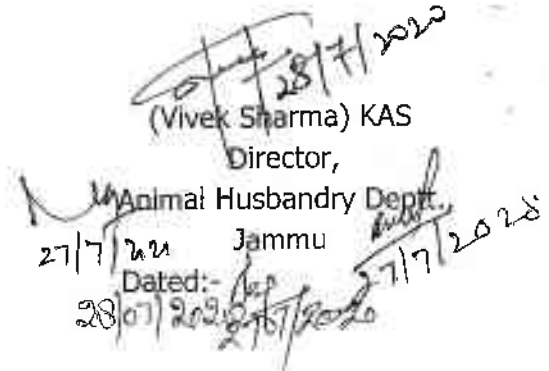 28/7/2020
(Vivek Sharma) KAS
Director,
Animal Husbandry Deptt.,
Jammu
27/7/2020
Dated:-
28/07/2020
27/07/2020